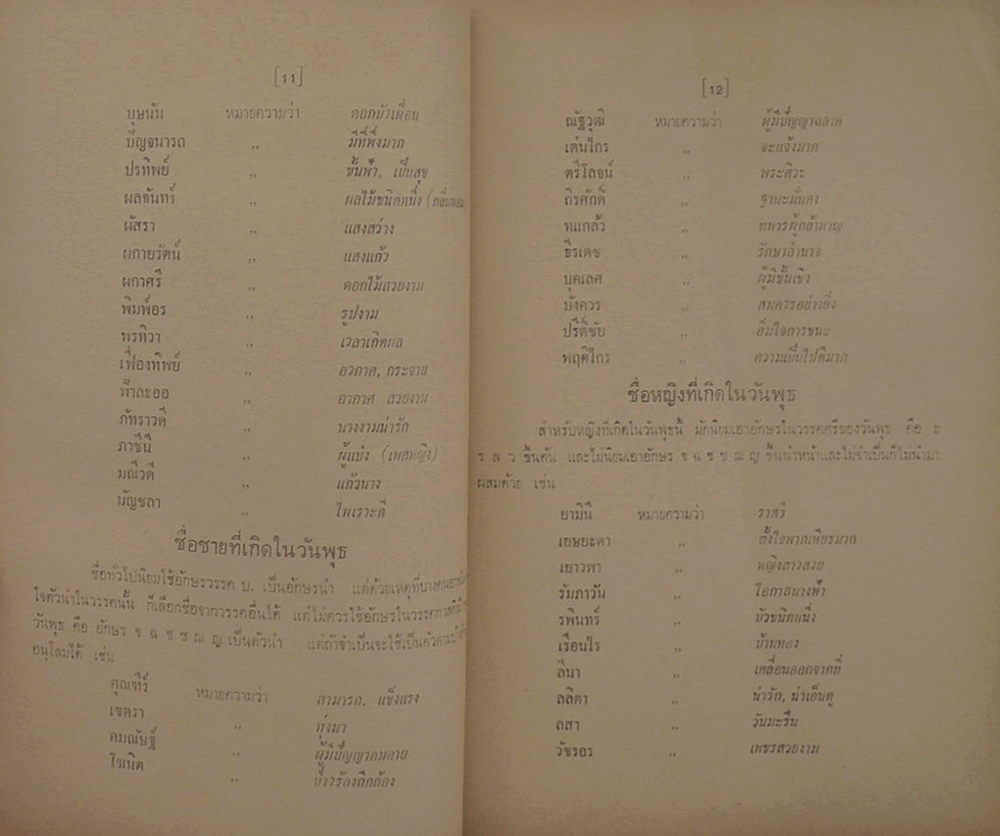 [11]
บุษนัน หมายความว่า ดอกบัวเผื่อน
ปัญจนารถ ,, มีที่พึ่งมาก
ปรทิพย์ ,, ชั้นฟ้า, เป็นสุข
ผลจันทร์ ,, ผลไม้ชนิดหนึ่ง (กลิ่นหอม
ผัสรา ,, แสงสว่าง
ผกายรัตน์ ,, แสงแก้ว
ผกาศรี ,, ดอกไม้สวยงาม
พิมพ์อร ,, รูปงาม
พรทิวา ,, เวลาเกิดผล
เฟื่องทิพย์ ,, อวกาศ, กระจาย
ฟ้าละออ ,, อากาศ สวยงาม
ภัทราวดี ,, นางงามน่ารัก
ภาชินี ,, ผู้แบ่ง (เพศหญิง)
มณีวดี ,, แก้วนาง
มัญชลา ,, ไพเราะดี
ชื่อชายที่เกิดในวันพุธ
ชื่อทั่วไปนิยมใช้อักษรวรรค บ. เป็นอักษรนำ แต่ด้วยเหตุที่บางคน
ใจตัวนำในวรรคนั้น ก็เลือกชื่อจากวรรคอื่นได้ แต่ไม่ควรใช้อักษรในวรรคกาลกิณี
วันพุธ คือ อักษร จ ฉ ช ซ ฌ ญ เป็นตัวนำ แต่ถ้าจำเป็นจะใช้เป็นตัวตาม
อนุโลมได้ เช่น
คุณจีร์ หมายความว่า สามารถ, แข็งแรง
เขตรา ,, ทุ่งนา
คมณัษฐ์ ,, ผู้มีปัญญาคมคาย
โฆนิต ,, ป่าวร้องกึกก้อง
[12]
ณัฐวุฒิ หมายความว่า ผู้มีปัญญาฉลาด
เด่นไกร ,, จะแจ้งมาก
ตรีโลจน์ ,, พระศิวะ
ถิรศักดิ์ ,, ฐานะมั่นคง
ทแกล้ว ,, ทหารผู้กล้าหาญ
ธีรเดช ,, รักษาอำนาจ
บุคเลศ ,, ผู้มีชั้นเชิง
บังควร ,, สมควรอย่างยิ่ง
ปรีดิชัย ,, อิ่มใจการชนะ
พฤติไกร ,, ความเป็นไปดีมาก
ชื่อหญิงที่เกิดในวันพุธ
สำหรับหญิงที่เกิดในวันพุธนี้ มักนิยมเอาอักษรในวรรคศรีของวันพุธ คือ ย
ร ล ว ขึ้นต้น และไม่นิยมเอาอักษร จ ฉ ช ซ ฌ ญ ขึ้นนำหน้าและไม่จำเป็นก็ไม่นำมา
ผสมด้วย เช่น
ยามินี หมายความว่า ราตรี
เยษยะดา ,, ตั้งใจพากเพียรมาก
เยาวพา ,, หญิงสาวสวย
รัมภาวัน ,, โอกาสนางฟ้า
รพินทร์ ,, บัวชนิดหนึ่ง
เรือนไร ,, บ้านทอง
ลีนา ,, เคลื่อนออกจากที่
ลลิตา ,, น่ารัก, น่าเอ็นดู
ลสา ,, วันมะรืน
วัชรอร ,, เพชรสวยงาม